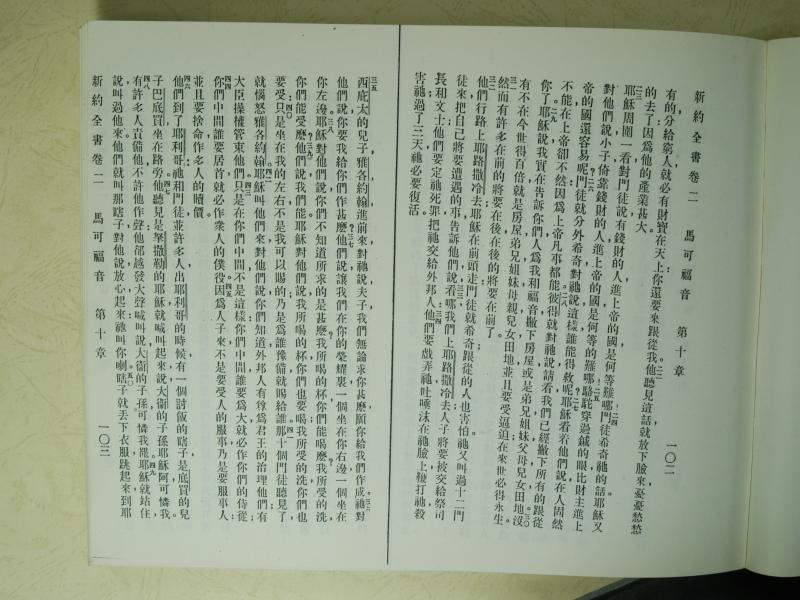 新約全書卷二　馬可福音　第十章　一〇二
有的分給窮人就必有財寶在天上你還要來跟從我他聽見這話就放下臉來憂憂愁愁
的去了因爲他的產業甚大
耶穌周圍一看對門徒說有錢財的人進上帝的國是何等的難哪門徒希奇祂的話耶穌又
對他們說小子倚靠錢財的人進上帝的國是何等的難哪駱駝穿過鍼的眼比財主進上
帝的國還容易呢門徒就分外希奇對祂說這樣誰能得救呢耶穌看着他們說在人固然
不能在上帝卻不然因爲上帝凡事都能彼得就對祂說請看我們已經撇下所有的跟從
你了耶穌說我實在告訴你們人爲我和福音撇下房屋或是弟兄姐妹父母兒女田地沒
有不在今世得百倍就是房屋弟兄姐妹母親兒女田地並且要受逼迫在來世必得永生
然而有許多在前的將要在後在後的將要在前了
他們行路上耶路撒冷去耶穌在前頭走門徒就希奇跟從的人也害怕祂又叫過十二門
徒來把自己將要遭遇的事告訴他們說看哪我們上耶路撒冷去人子將要被交給祭司
長和文士他們要定祂死罪把祂交給外邦人他們要戲弄祂吐唾沫在祂臉上鞭打祂殺
害祂過了三天祂必要復活
西庇太的兒子雅各約翰進前來對祂說夫子我們無論求你甚麼願你給我們作成祂對
他們說你要我給你們作甚麼他們說讓我們在你的榮耀裏一個坐在你右邊一個坐在
你左邊耶穌對他們說你們不知道所求的是甚麼我所喝的杯你們能喝麼我所受的洗
你們能受麼他們說我們能耶穌對他們說我所喝的杯你們也要喝我所受的洗你們也
要受只是坐在我的左右不是我可以賜的乃是爲誰豫備就賜給誰那十個門徒聽見了
就惱怒雅各約翰耶穌叫他們來對他們說你們知道外邦人有尊爲君王的治理他們有
大臣操權管束他們只是在你們中間不是這樣你們中間誰要爲大就必作你們的侍從
你們中間誰要居首就必作衆人的僕役因爲人子來不是要受人的服事乃是要服事人
並且要捨命作多人的贖價
他們到了耶利哥祂和門徒並許多人出耶利哥的時候有一個討飯的瞎子是底買的兒
子巴底買坐在路旁他聽見是拿撒勒的耶穌就喊叫起來說大衞的子孫耶穌阿可憐我
有許多人責備他不許他作聲他卻越發大聲喊叫說大衞的子孫可憐我罷耶穌就站住
說叫過他來他們就叫那瞎子對他說放心起來祂叫你喇瞎子就丟下衣服跳起來到耶
新約全書卷二　馬可福音　第十章　一〇三